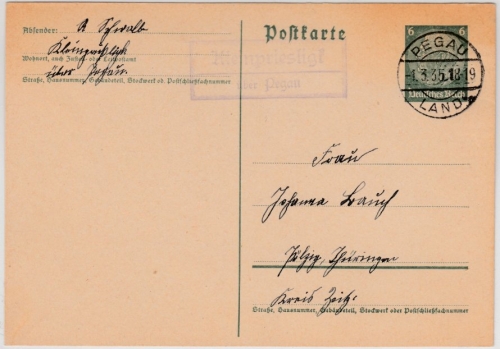 Absender: A Schwalb
Kleinpriestigk
Wohnort, auch Zustell- oder Leitpostamt
über Pegau
Straße, Hausnummer, Gebäudeteil, Stockwerk od. Postschließfachnummer
Postkarte
Kleinpriestigk
über Pegau
6 6
PEGAU
-1.3.35.18-19
LAND
Deutsches Reich
Frau
Johanna Bauch
Pölzig, Thüringen
Kreis Zeitz
Straße, Hausnummer, Gebäudeteil, Stockwerk oder Postschließfachnummer